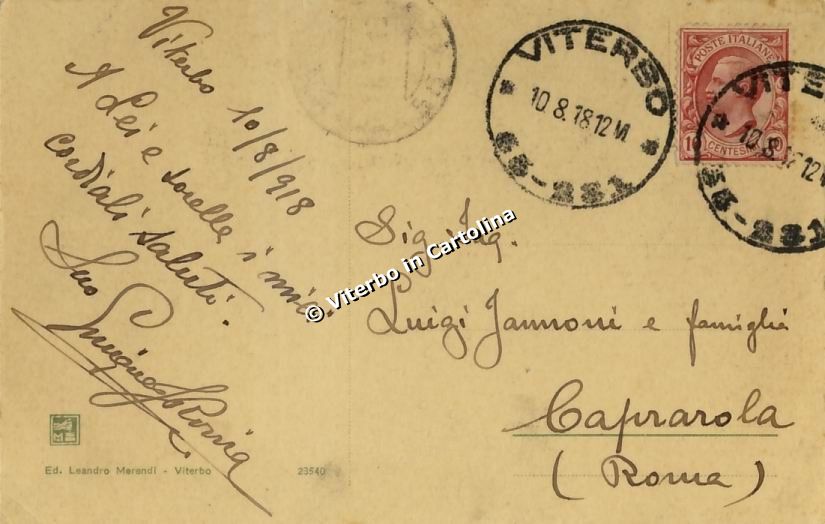 Viterbo 10/8/918
A Lei e sorelle i miei
cordiali saluti.
Suo
VITERBO
10.8.18 12 M
63-221
POSTE ITALIANE
10 CENTESIMI 10
VITE
10.8.18 12 M
63-221
© Viterbo in Cartolina
Sig. Ing.
Luigi Jannoni e famiglia
Caprarola
(Roma)
Ed. Leandro Merendi - Viterbo
23540